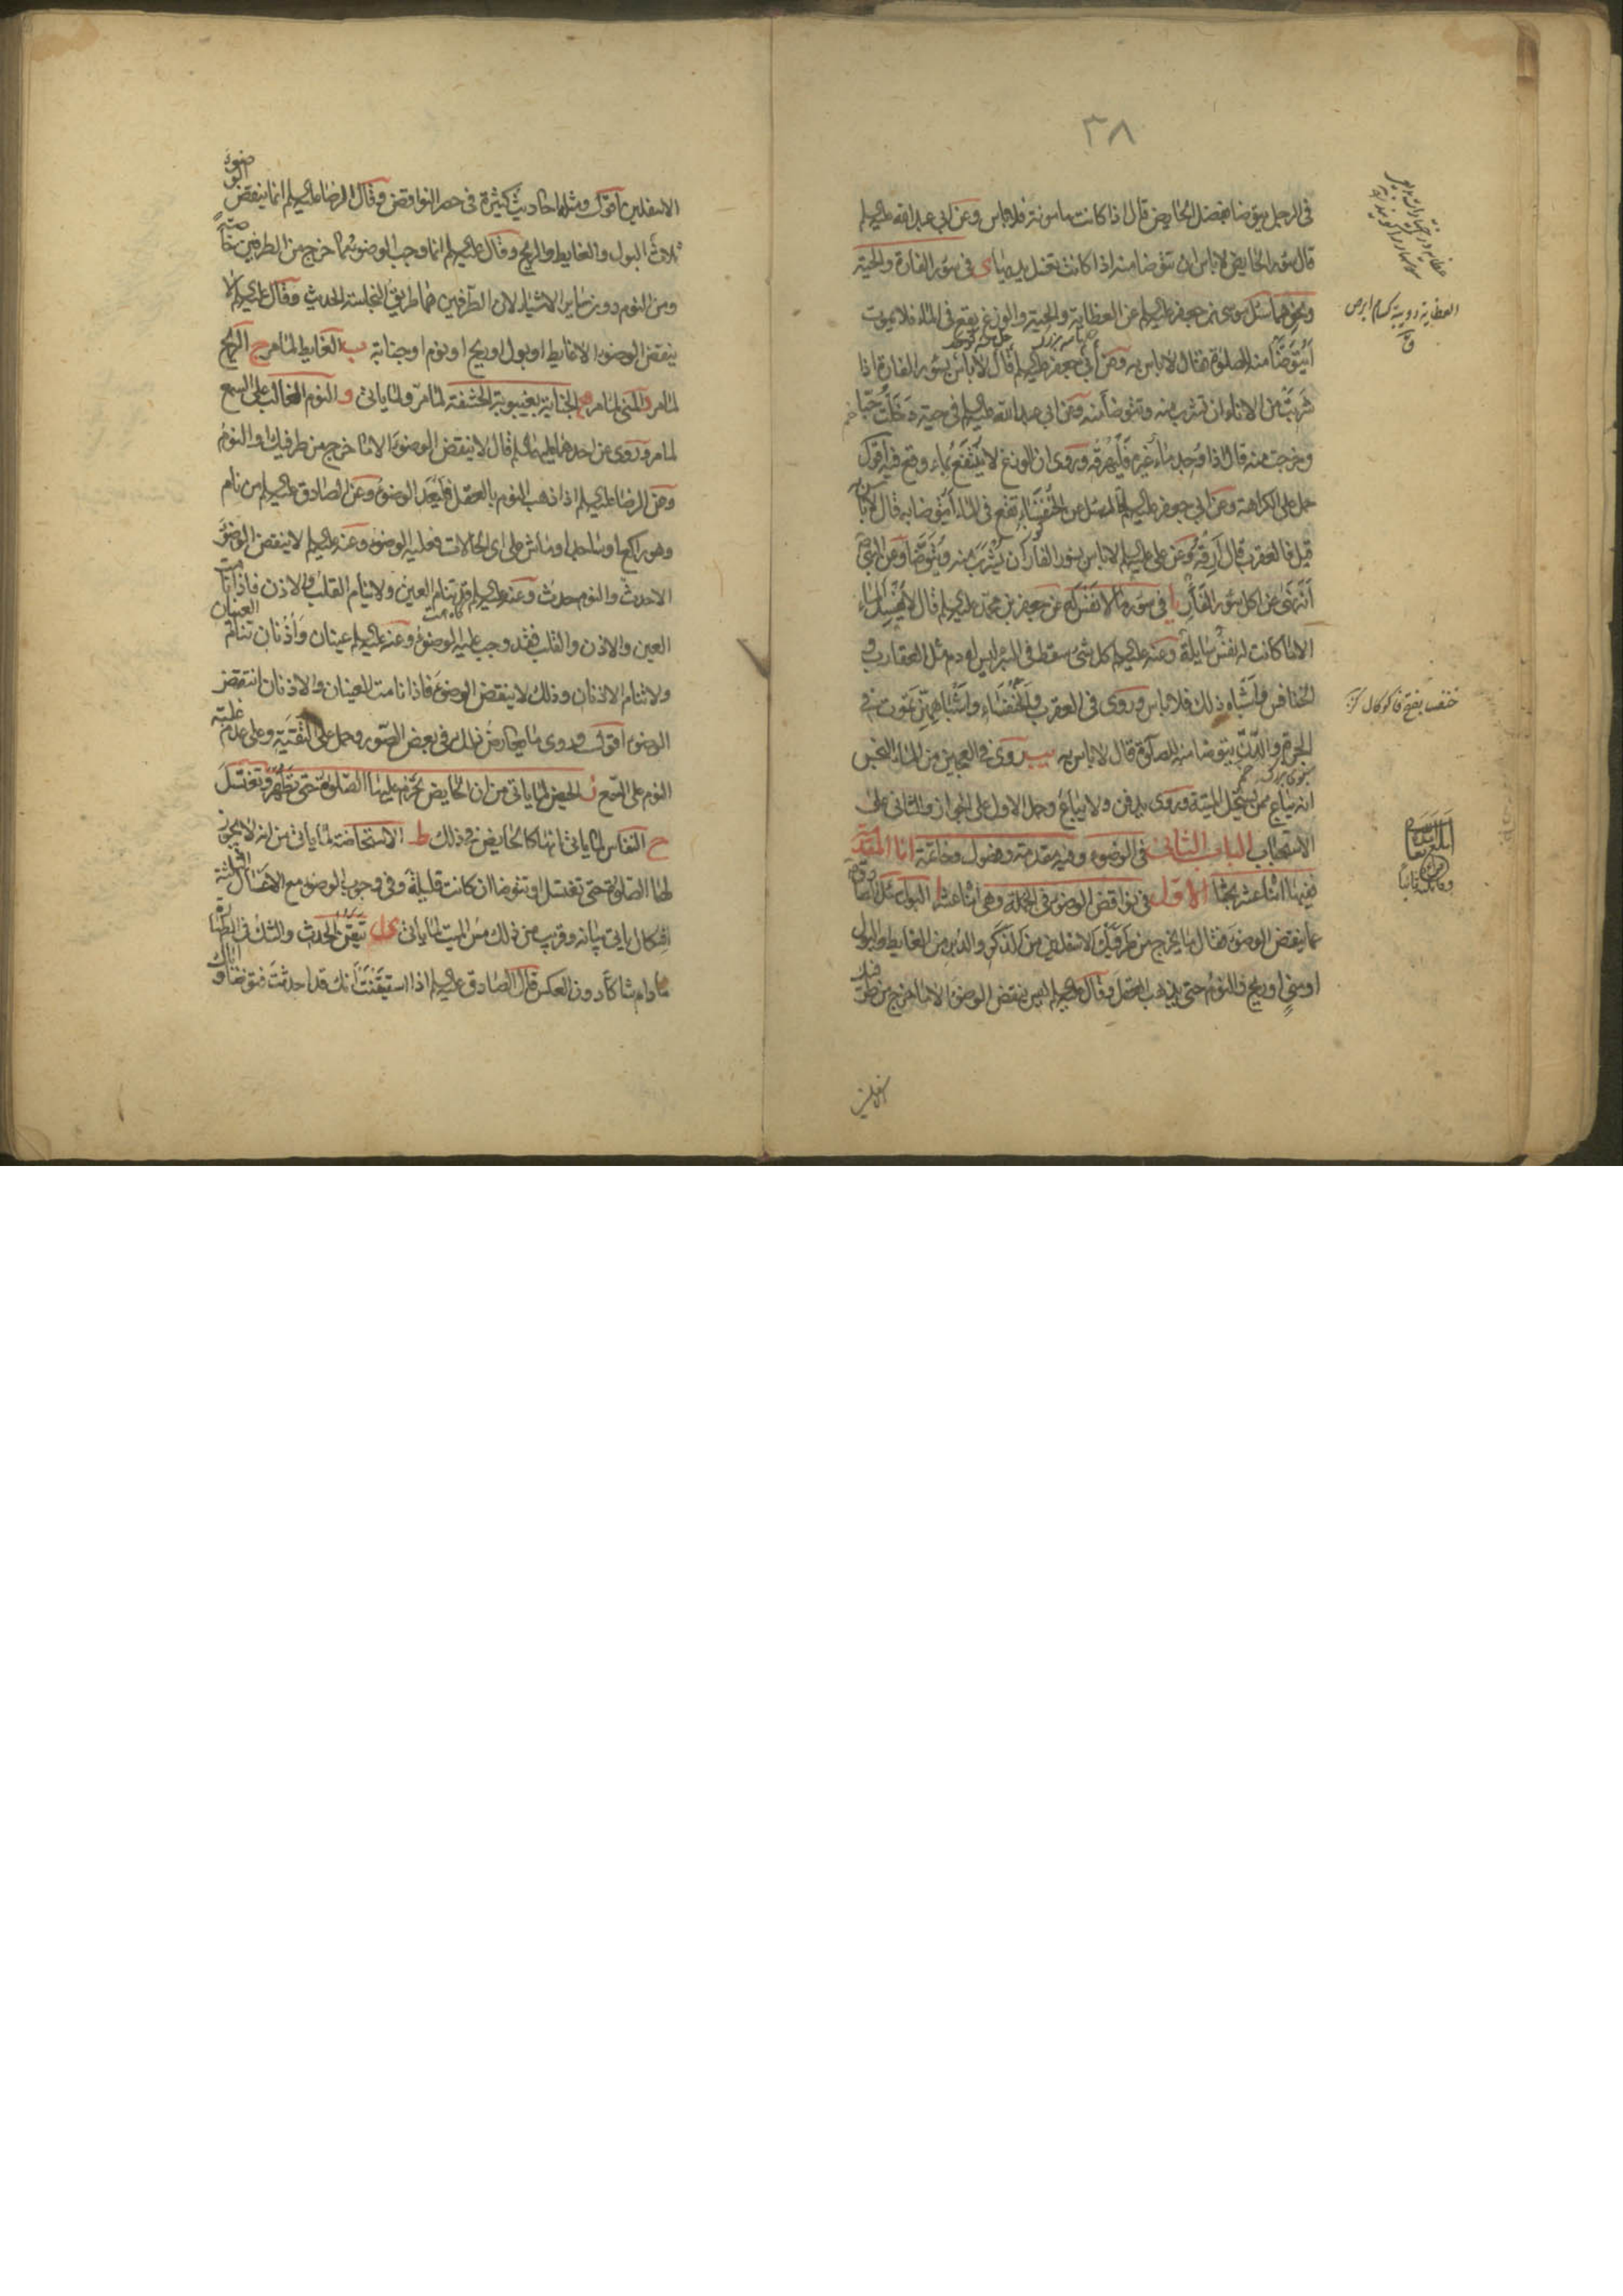 ٣٨
في الرجل يتوضأ بفضل الحايض قال اذا كانت مأمونة فلا بأس وعن ابي عبد الله عليه السلم
قال سؤر الحايض لا بأس ان تتوضأ منه اذا كانت تغسل يديها ى في سؤر الفارة والحية
ونحوهما سئل موسى بن جعفر عليه السلم عن العظاية والحية والوزغ يقع في الماء فلا يموت
أيتوضأ منه للصلوة فقال لا باس به وعن أبي جعفر عليه السلم قال لا بأس بسؤر الفارة اذا
شربت من الاناء ان تشرب منه وتتوضأ منه وعن ابي عبد الله عليه السلم في حية دخلت حبا
وخرجت منه قال اذا وجد ماء غيره فليهرقه وروى ان الوزغ لا ينتفع بماء وقع فيه اقول
حمل على الكراهة وعن ابي جعفر عليه السلم سئل عن الخنفساء تقع في الماء أيتوضأ به قال لا بأس به
قيل فالعقرب قال أرقه وعن علي عليه السلم لا باس بسؤر الفأر أن يشرب منه ويتوضأ وعن النبي
أنه نهى عن اكل سؤر الفأر يا في سؤر ما لا نفس له عن جعفر بن محمد عليه السلم قال لا يفسد الماء
الا ما كانت له نفس سايلة وعنه عليه السلم كل شئ سقط في البئر ليس له دم مثل العقارب و
الخنافس وأشباه ذلك فلا باس وروى في العقرب والخنفساء واشباههن تموت في
الجرة والدن يتوضأ منه للصلوة قال لا باس به يب روى في العجين من الماء النجس
انه يباع ممن يستحل الميتة وروى يدفن ولا يباع وحمل الاول على الجواز والثاني على
الاستحباب الباب الثاني في الوضوء وفيه مقدمة وفصول وخاتمة اما المقدمة
ففيها اثنا عشر بحثا الاول في نواقض الوضوء في الجملة وهي اثنا عشر ا البول سئل الصادق
عما ينقض الوضوء فقال ما يخرج من طرفيك الاسفلين من الذكر والدبر من الغايط والبول
او مني او ريح والنوم حتى يذهب العقل وقال عليه السلم ليس ينقض الوضوء الا ما خرج من طرفيك
العظاية دويبة كسام ابرص
ق
بلغ
وقابلته ثانيا
الاسفلين اقول ومثلها احاديث كثيرة في حصر النواقض وقال الرضا عليه السلم انما ينقض الوضوء
ثلاث البول والغايط والريح وقال عليه السلم انما وجب الوضوء مما خرج من الطرفين خاصة
ومن النوم دون ساير الاشياء لان الطرفين هما طريق النجاسة الحدث وقال عليه السلم لا
ينقض الوضوء الا غايط او بول او ريح او نوم او جنابة ب الغايط لما مر ج الريح
لما مر د المني لما مر ه الجنابة بغيبوبة الحشفة لما مر ولما ياتي و النوم الغالب على السمع
لما مر وروى عن احدهما عليهما السلم قال لا ينقض الوضوء الا ما خرج من طرفيك او النوم
وعن الرضا عليه السلم اذا ذهب النوم بالعقل فليعد الوضوء وعن الصادق عليه السلم من نام
وهو راكع او ساجد او ماش على اي الحالات فعليه الوضوء وعنه عليه السلم لا ينقض الوضوء
الا حدث والنوم حدث وعنه عليه السلم قد تنام العين ولا ينام القلب والاذن فاذا نامت
العين والاذن والقلب فقد وجب عليه الوضوء وعنه عليه السلم عينان وأذنان تنام العينان
ولا تنام الاذنان وذلك لا ينقض الوضوء فاذا نامت العينان والاذنان انتقض
الوضوء اقول وروى ما يعارض ذلك في بعض الصور وحمل على التقية وعلى عدم غلبة
النوم على السمع ز الحيض لما ياتي من ان الحايض تحرم عليها الصلوة حتى تطهر وتغتسل
ح النفاس لما ياتي انها كالحايض في ذلك ط الاستحاضة لما ياتي من انه لا يجوز
لها الصلوة حتى تغتسل او تتوضأ ان كانت قليلة وفي وجوب الوضوء مع الاغسال الثلثة
اشكال ياتي بيانه وقريب من ذلك مس الميت لما ياتي يا تيقن الحدث والشك في الطهارة
ما دام شاكا دون العكس قال الصادق عليه السلم اذا استيقنت أنك قد احدثت فتوضأ واياك